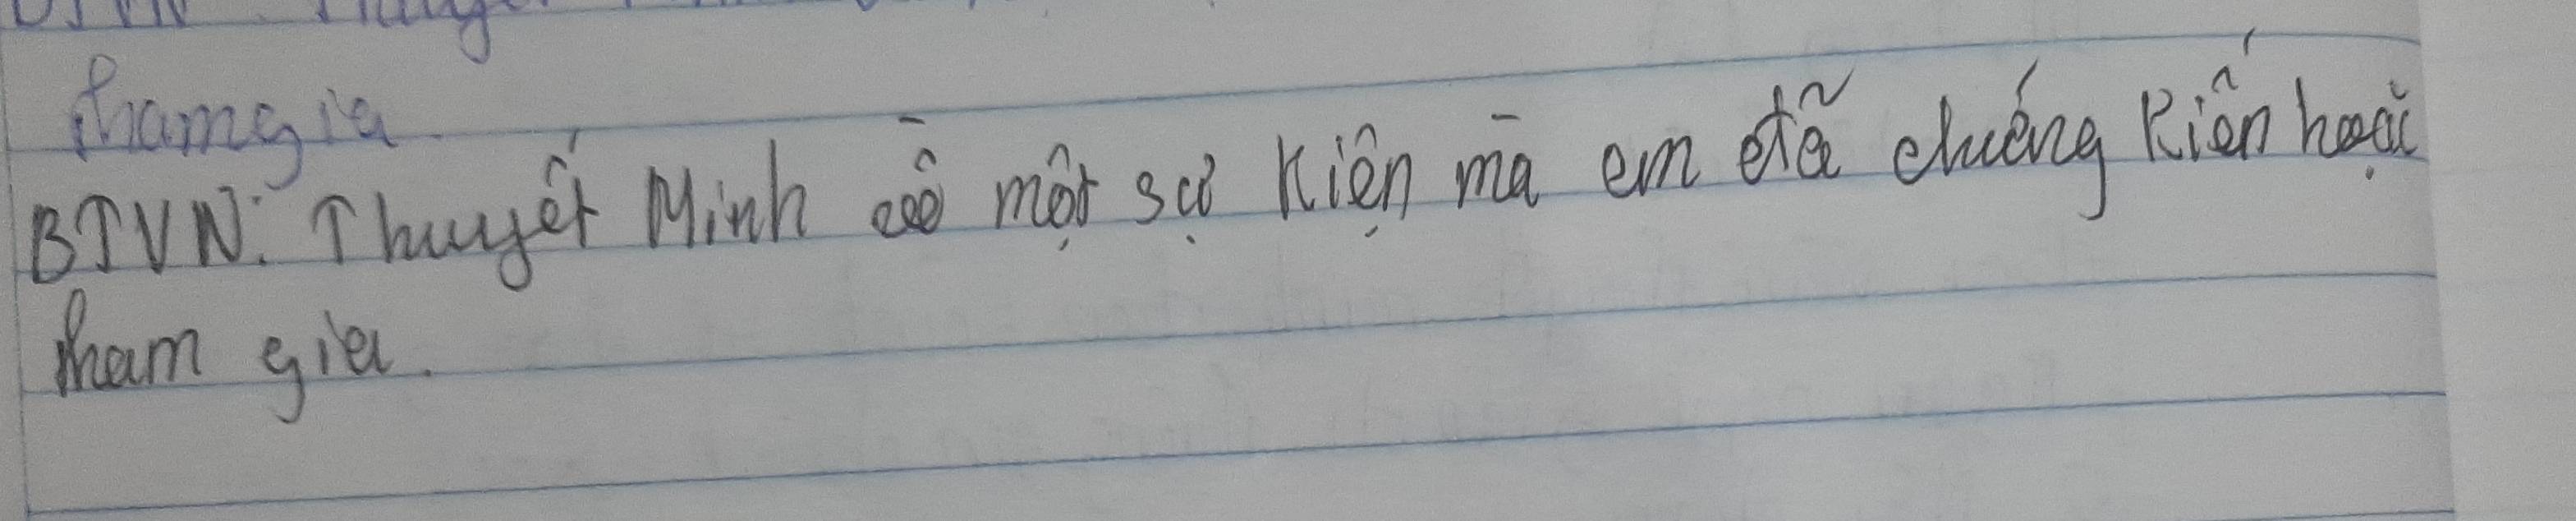 BTVN
tham gia
BTVN: Thuyết Minh về một sự kiện mà em đã chứng kiến hoặc
tham gia.